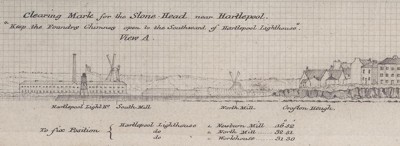 Clearing Mark for the Stone Head near Hartlepool.
"Keep the Foundry Chimney open to the Southward of Hartlepool Lighthouse".
View A
Hartlepool Light Ho. South Mill North Mill. Crofton Heugh.
To fix Position { Hartlepool Lighthouse Newburn Mill
do North Mill
do Workhouse 51.50